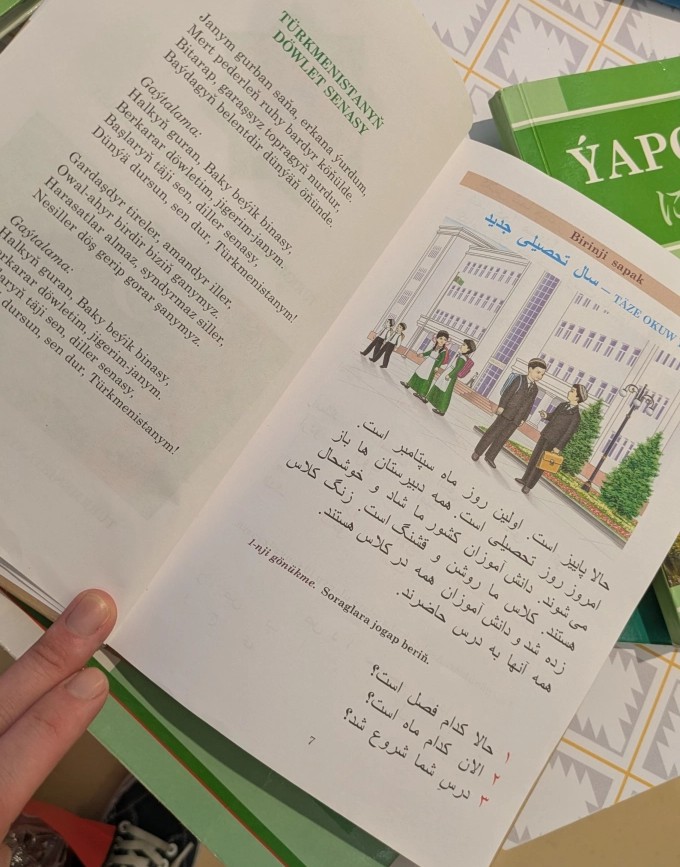 TÜRKMENISTANYŇ
DÖWLET SENASY
Janym gurban saňa, erkana ýurdum,
Mert pederleň ruhy bardyr köňülde.
Bitarap, garaşsyz topragyň nurdur,
Baýdagyň belentdir dünýäň öňünde.
Gaýtalama:
Halkyň guran, Baky beýik binasy,
Berkarar döwletim, jigerim-janym.
Başlaryň täji sen, diller senasy,
Dünýä dursun, sen dur, Türkmenistanym!
Gardaşdyr tireler, amandyr iller,
Owal-ahyr birdir biziň ganymyz.
Harasatlar almaz, syndyrmaz siller,
Nesiller döş gerip gorar şanymyz.
Gaýtalama:
Halkyň guran, Baky beýik binasy,
döwletim, jigerim-janym.
täji sen, diller senasy,
dursun, sen dur, Türkmenistanym!
Birinji sapak
سال تحصیلی جدید – TÄZE OKUW
حالا پاییز است. اولین روز ماه سپتامبر است.
امروز روز تحصیلی است. همه دبیرستان ها باز
می شوند. دانش آموزان کشور ما شاد و خوشحال
هستند. کلاس ما روشن و قشنگ است. زنگ کلاس
زده شد و دانش آموزان همه در کلاس هستند.
همه آنها به درس حاضرند.
1-nji gönükme. Soraglara jogap beriň.
۱ حالا کدام فصل است؟
۲ الان کدام ماه است؟
۳ درسِ شما شروع شد؟
7
ÝAPO
に